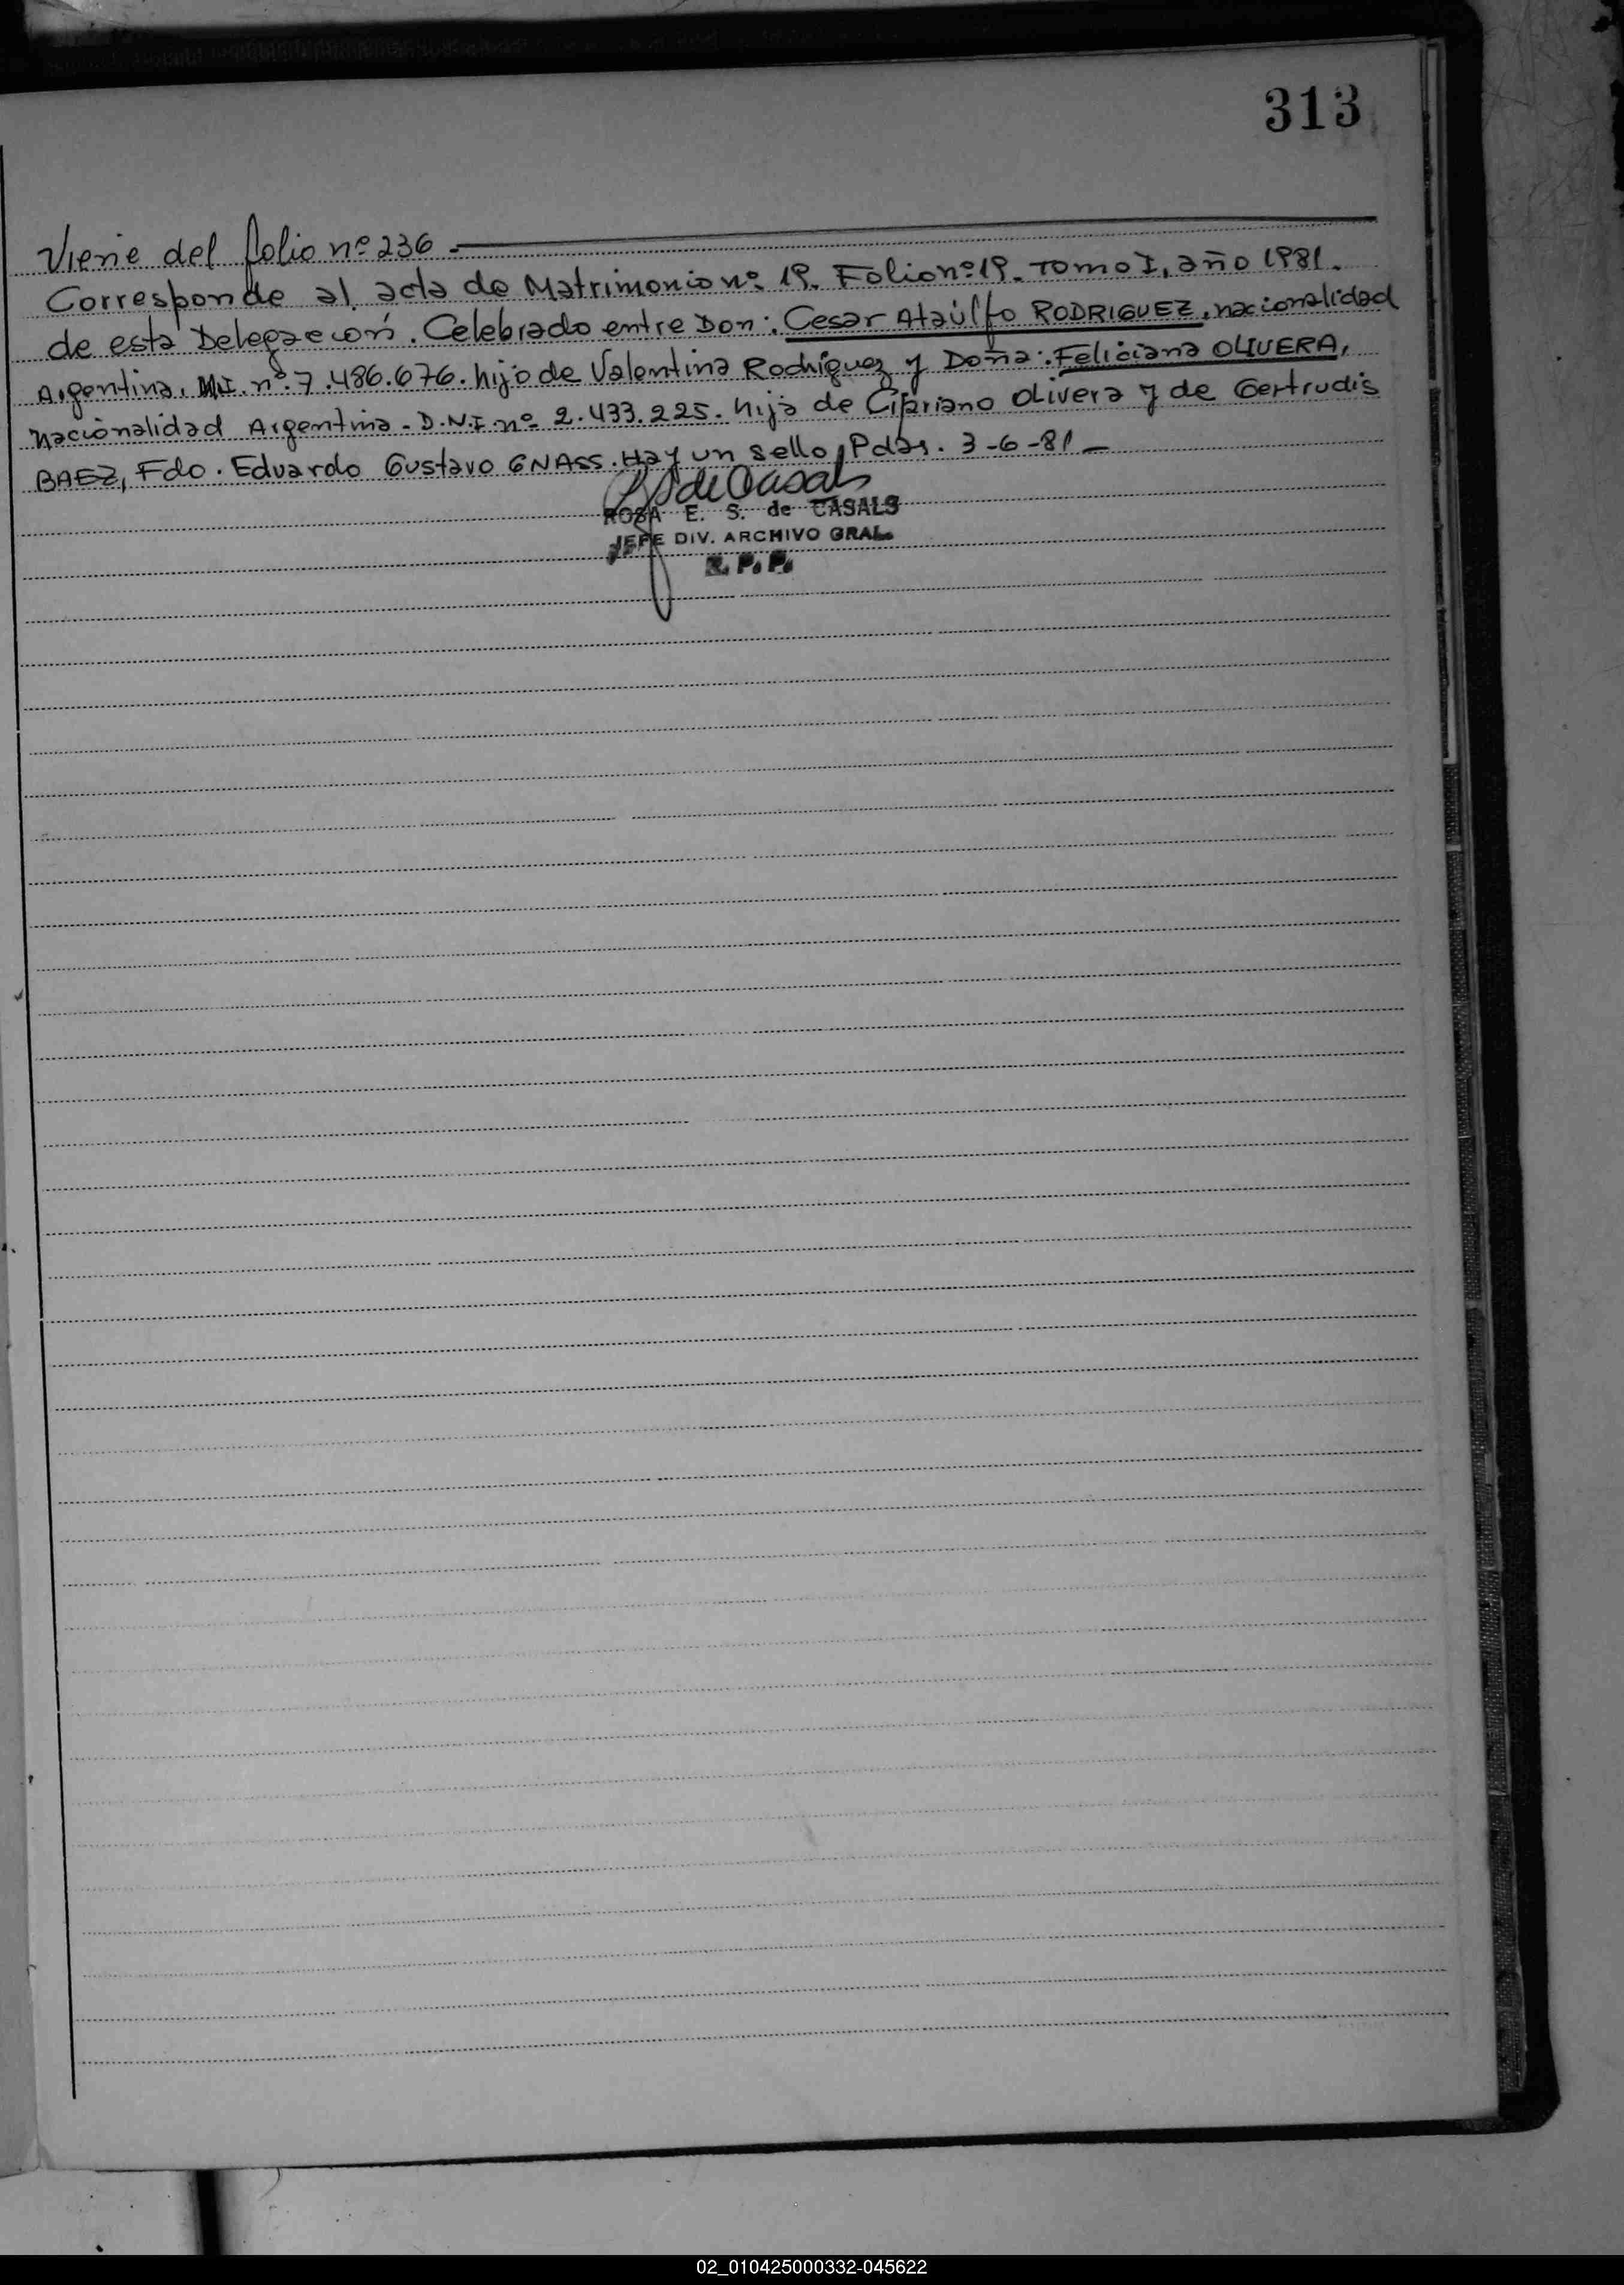 313
Viene del folio nº 236 -
Corresponde al acta de Matrimonio nº 19. Folio nº 19. Tomo I, año 1981.
de esta Delegación. Celebrado entre Don: Cesar Ataúlfo RODRIGUEZ, nacionalidad
Argentina, M.I. nº 7.486.676. hijo de Valentina Rodríguez y Doña: Feliciana OLIVERA,
nacionalidad Argentina - D.N.I. nº 2.433.225. hija de Cipriano Olivera y de Gertrudis
BAEZ, Fdo. Eduardo Gustavo GNASS. Hay un sello, Pdas. 3-6-81 -
ROSA E. S. de CASALS
JEFE DIV. ARCHIVO GRAL.
R. P. P.
02_010425000332-045622